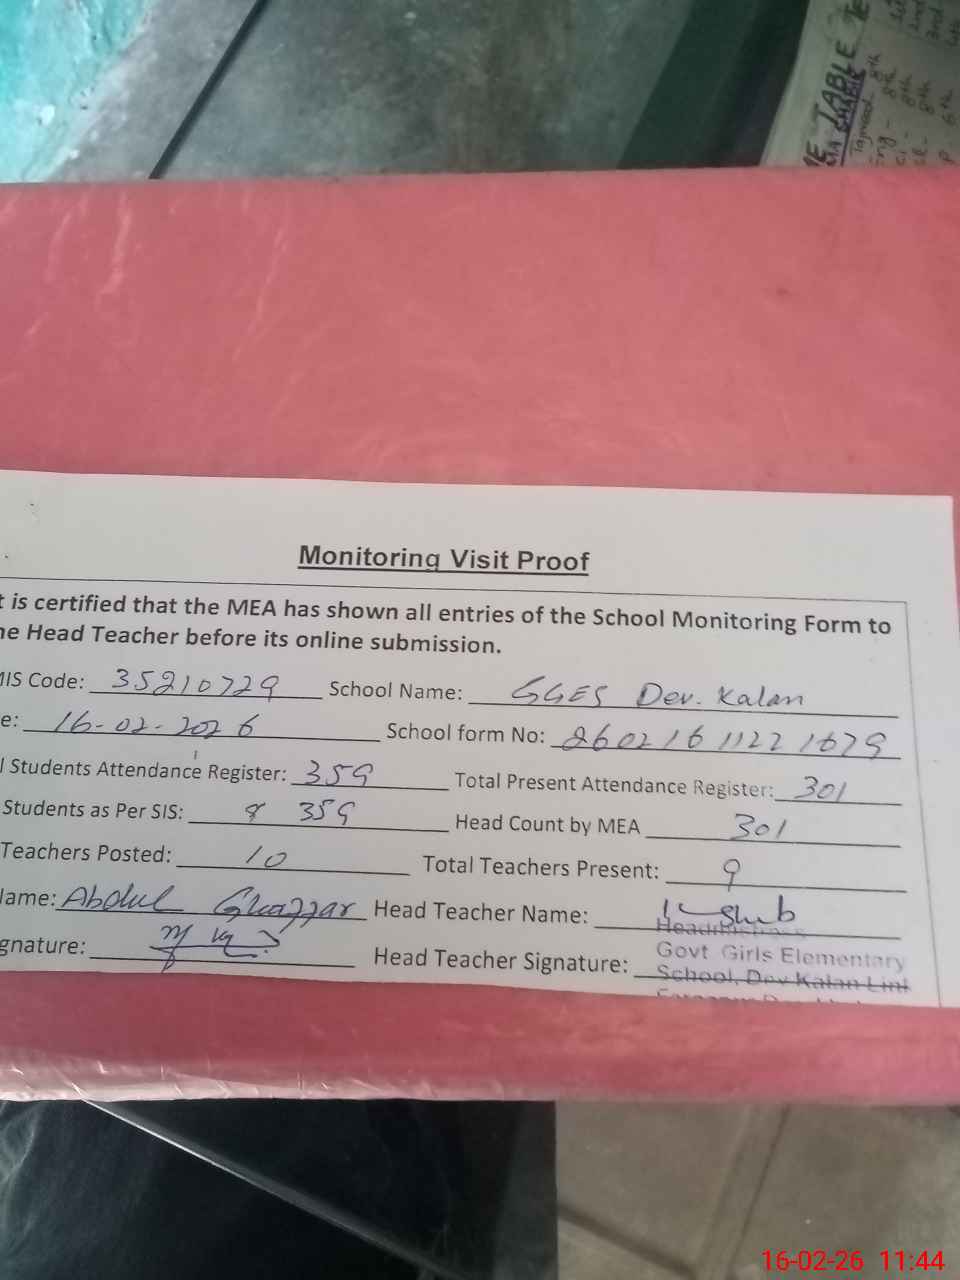 TABLE
Tajweed - 8th
Monitoring Visit Proof
t is certified that the MEA has shown all entries of the School Monitoring Form to
he Head Teacher before its online submission.
MIS Code: 35210729 School Name: GGES Dev. Kalan
e: 16-02-2026 School form No: 26021611221679
l Students Attendance Register: 359 Total Present Attendance Register: 301
Students as Per SIS: 359 Head Count by MEA 301
Teachers Posted: 10 Total Teachers Present: 9
Name: Abdul Ghaffar Head Teacher Name:
gnature: Head Teacher Signature:
Headmistress
Govt Girls Elementary
School, Dev Kalan
16-02-26 11:44